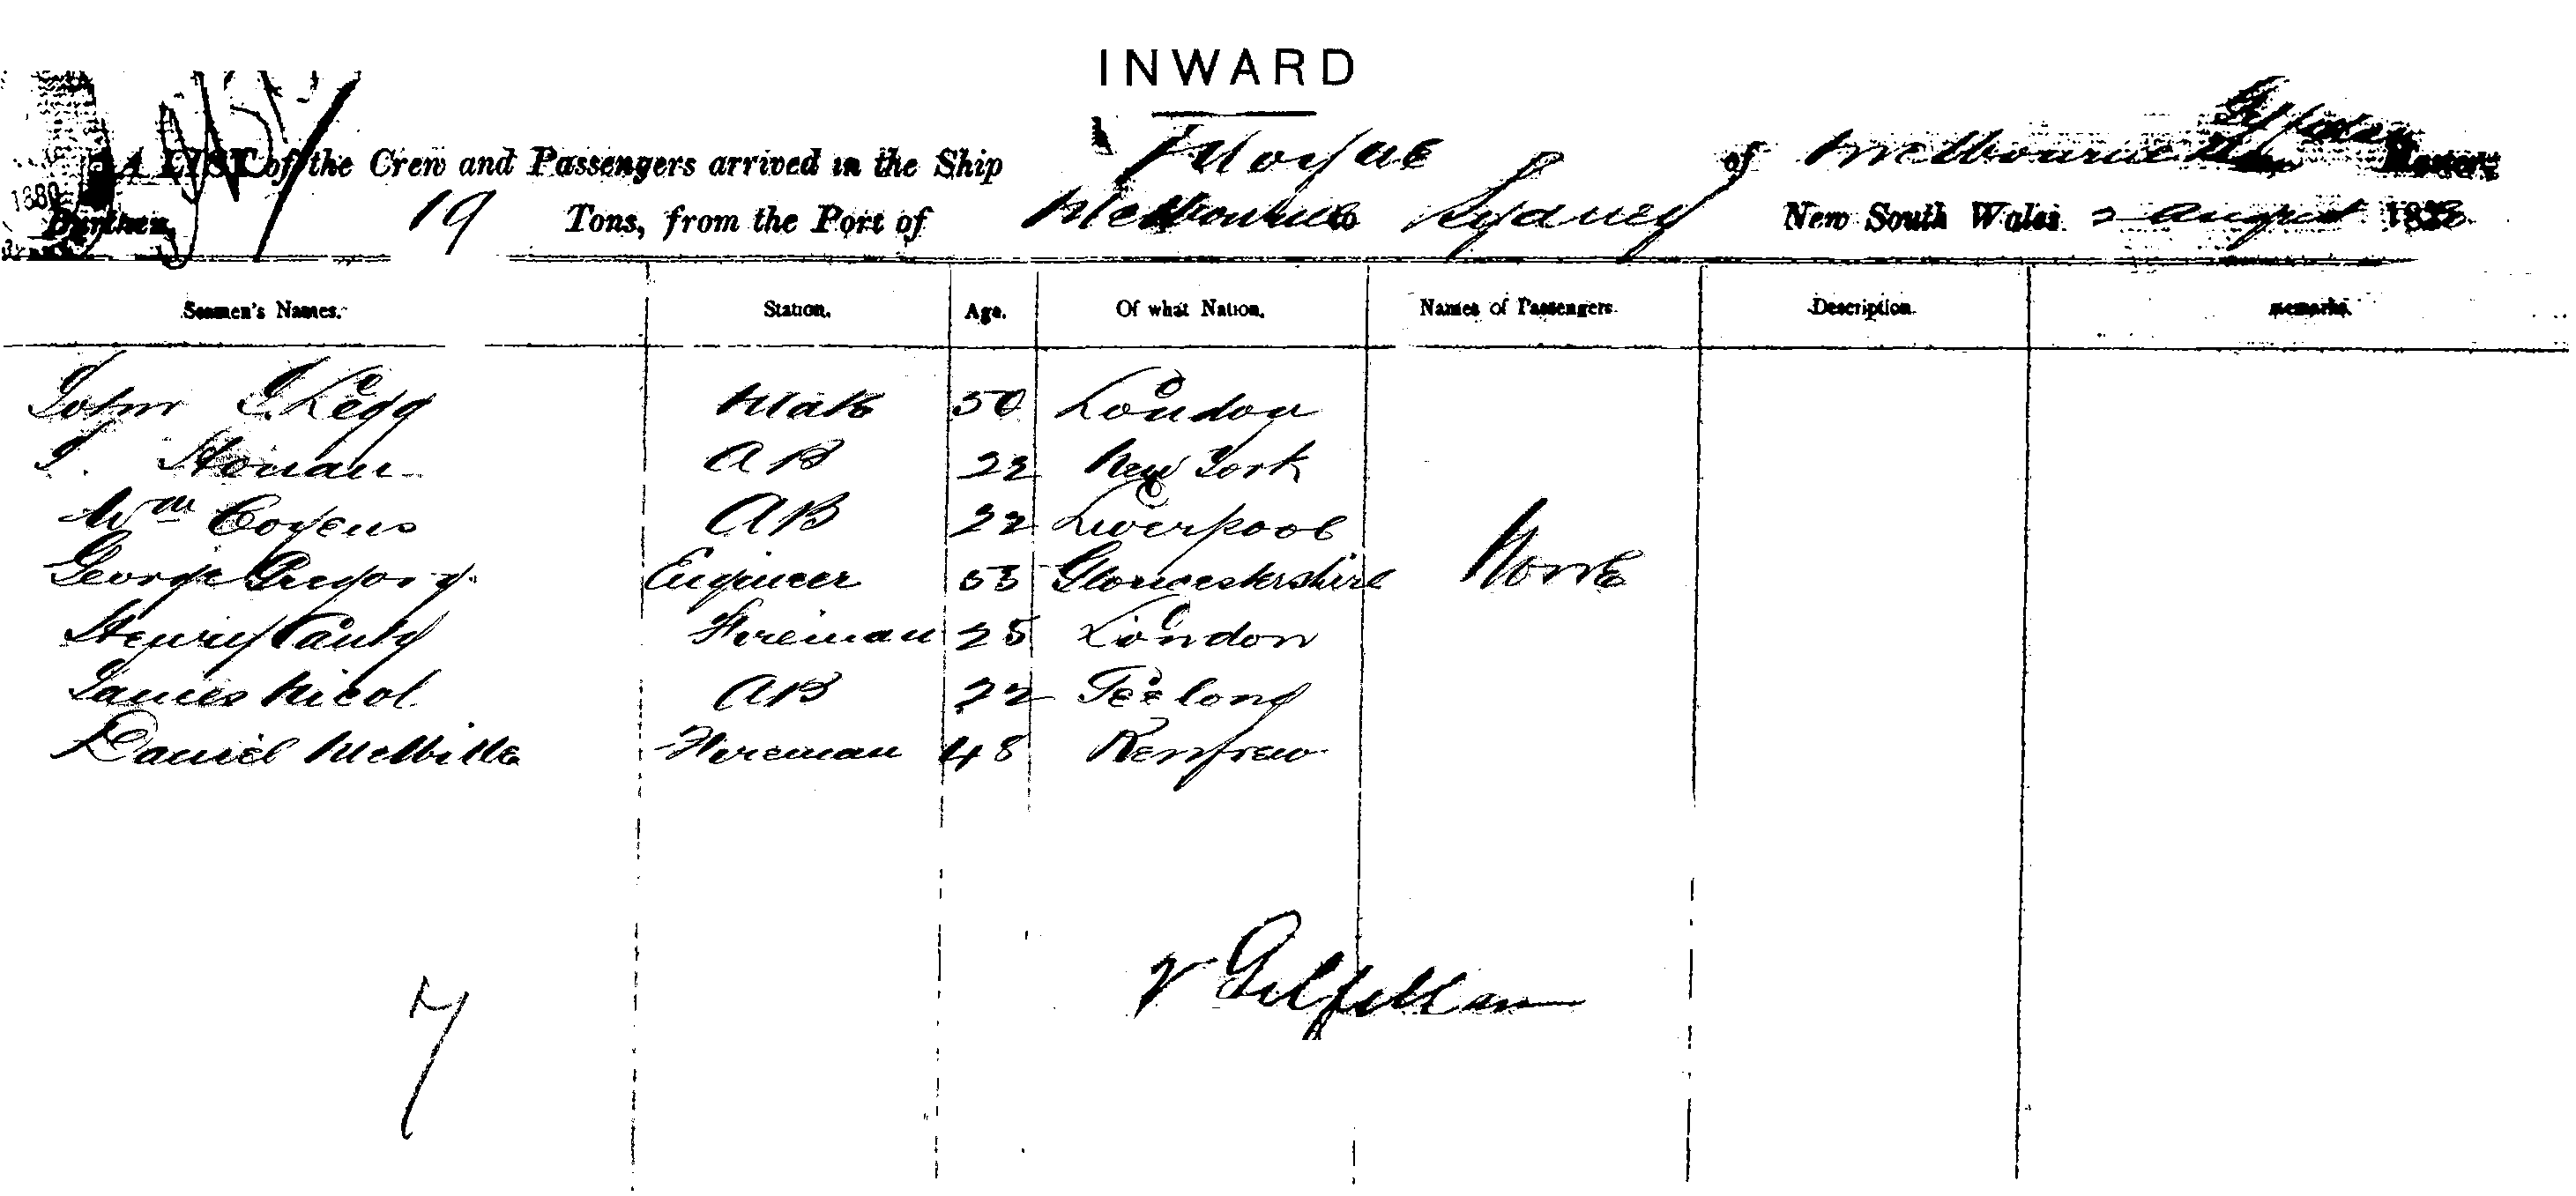 INWARD
A LIST of the Crew and Passengers arrived in the Ship of Melbourne Master,
Burthen, 19 Tons, from the Port of Melbourne to Sydney New South Wales 2 August 188
1880
Seamen's Names. Station. Age. Of what Nation. Names of Passengers. Description. Remarks.
John Legg Mate 50 London
AB 22 New York
Wm Cozens AB 22 Liverpool
George Gregory Engineer 53 Gloucestershire None
Henry Fireman 25 London
James Nicol AB 22 Geelong
Daniel Melville Fireman 48 Renfrew
Gilfillan
7